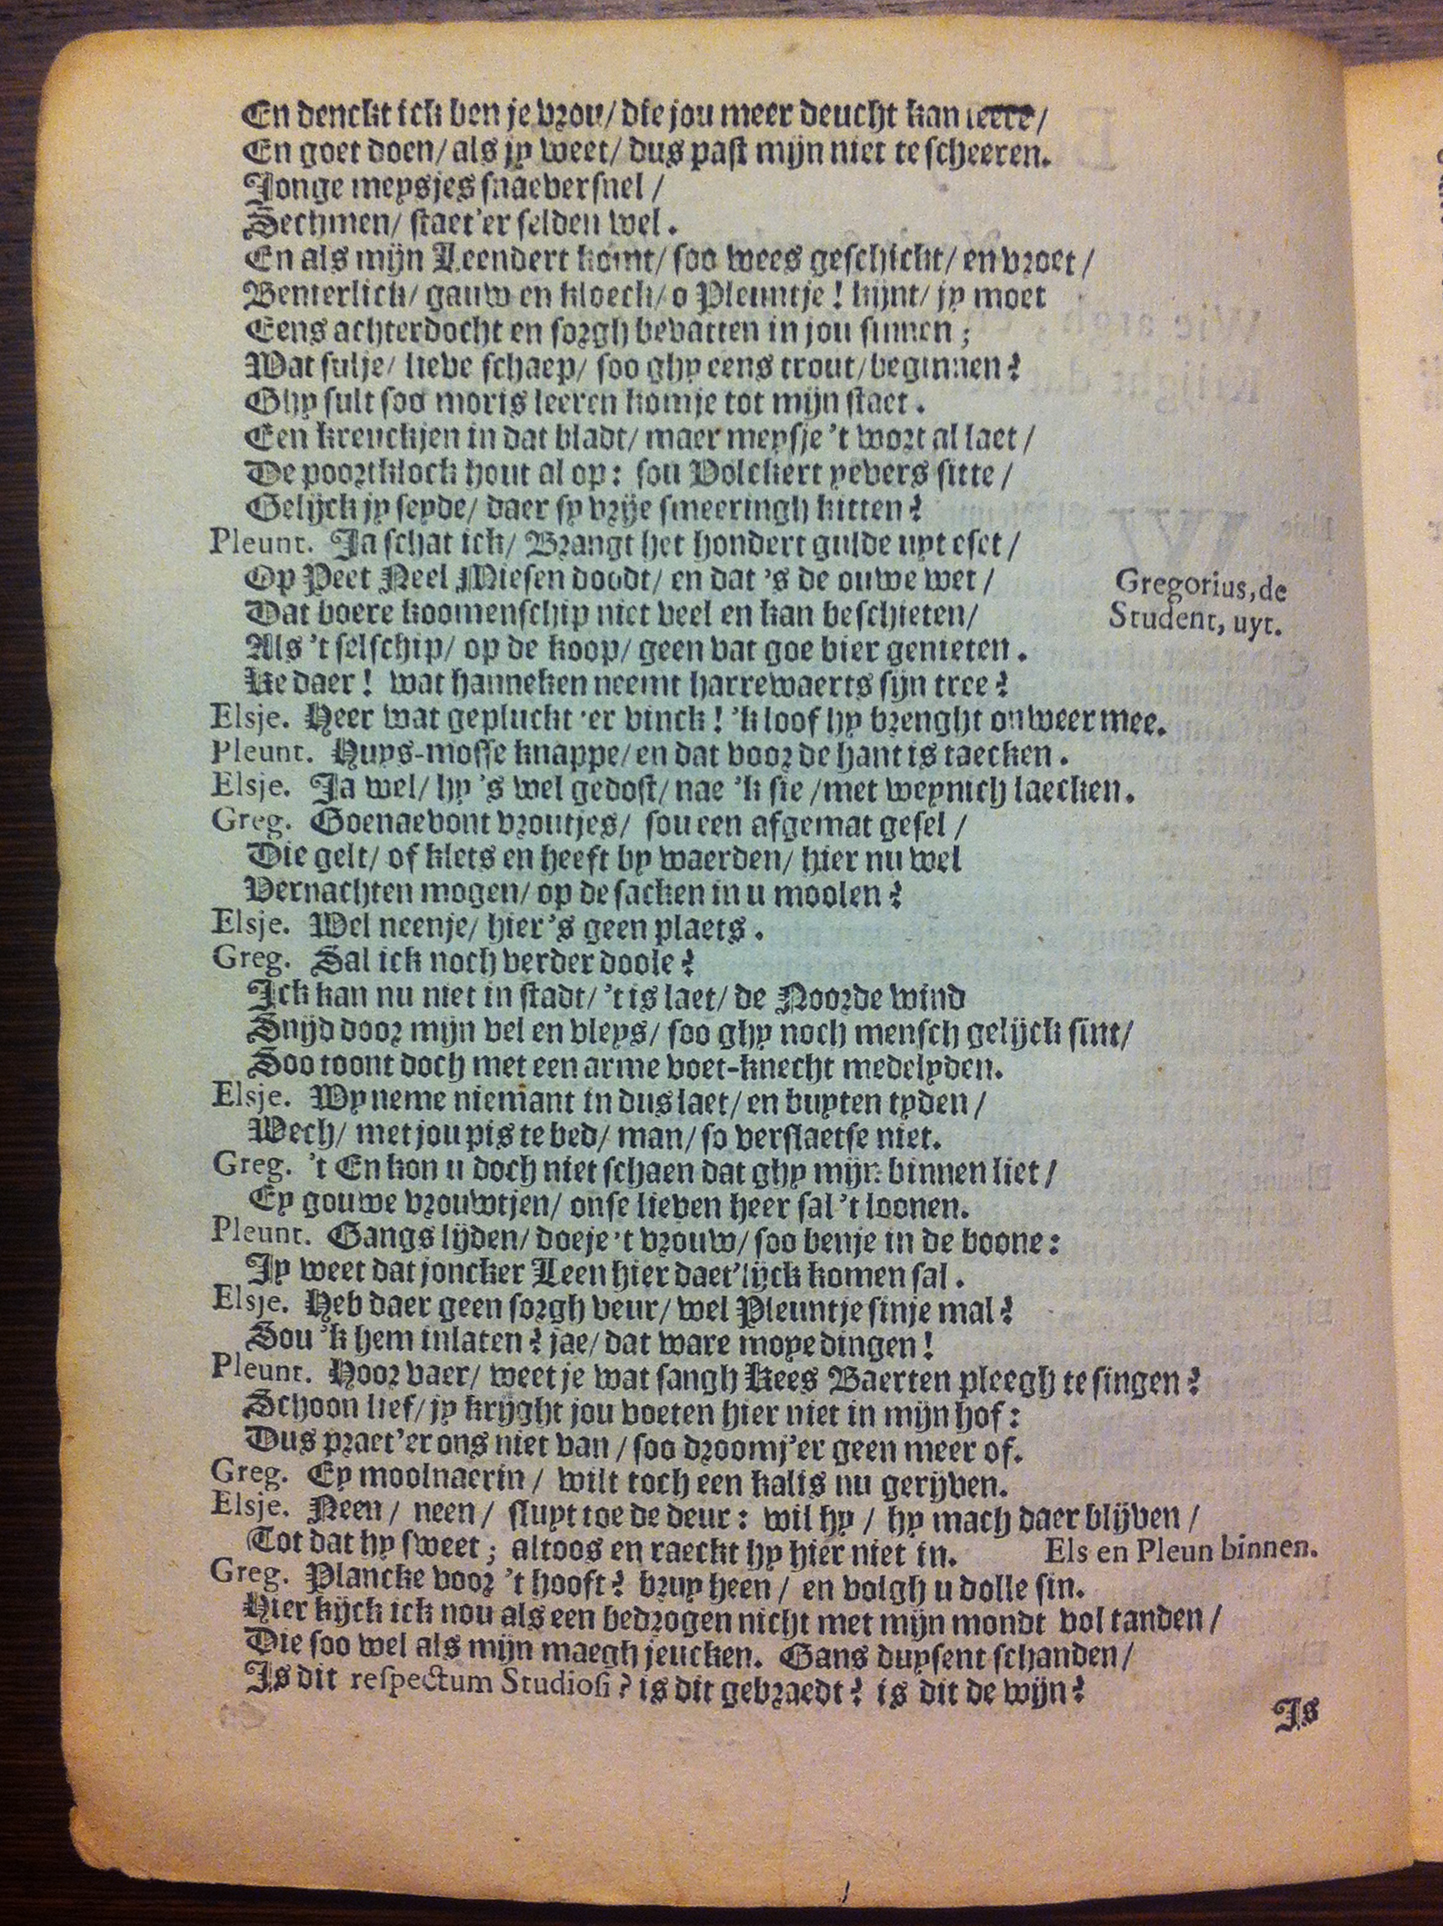 En denckt ick ben je vrou/ die jou meer deucht kan leere/
En goet doen/ als jy weet/ dus past mijn niet te scheeren.
Jonge meysjes snaever snel/
Sechmen/ staet'er selden wel.
En als mijn Leendert komt/ soo wees geschickt/ en vroet/
Benierlick/ gauw en kloeck/ o Pleuntje! kijnt/ jy moet
Eens achterdocht en sorgh bevatten in jou sinnen;
Wat sulje/ lieve schaep/ soo ghy eens trout/ beginnen?
Ghy sult soo moris leeren komje tot mijn staet.
Een kreuckjen in dat bladt/ maer meysje 't wort al laet/
De poortklock hout al op: sou Volckert yevers sitte/
Gelijck jy seyde/ daer sy vrye smeeringh kitten?
Pleunt. Ja schat ick/ Brangt het hondert gulde uyt eset/
Op Peet Neel Miesen doodt/ en dat 's de ouwe wet/
Dat boere koomenschip niet veel en kan beschieten/
Als 't selschip/ op de koop/ geen vat goe bier genieten.
Gregorius, de
Student, uyt.
Ke daer! wat hanneken neemt harrewaerts sijn tree?
Elsje. Heer wat gepluckt 'er vinck! 'k loof hy brenght onweer mee.
Pleunt. Huys-mosse knappe/ en dat voor de hant is taecken.
Elsje. Ja wel/ hy 's wel gedost/ nae 'k sie/ met weynich laecken.
Greg. Goenaevont vroutjes/ sou een afgemat gesel/
Die gelt/ of klets en heeft by waerden/ hier nu wel
Vernachten mogen/ op de sacken in u moolen?
Elsje. Wel neenje/ hier 's geen plaets.
Greg. Sal ick noch verder doole?
Ick kan nu niet in stadt/ 't is laet/ de Noorde wind
Snijd door mijn vel en vleys/ soo ghy noch mensch gelijck sint/
Soo toont doch met een arme voet-knecht medelyden.
Elsje. Wy neme niemant in dus laet/ en buyten tyden/
Wech/ met jou pis te bed/ man/ so verslaetse niet.
Greg. 't En kon u doch niet schaen dat ghy mijn binnen liet/
Ey gouwe vrouwtjen/ onse lieven heer sal 't loonen.
Pleunt. Gangs lijden/ doeje 't vrouw/ soo benje in de boone:
Jy weet dat joncker Leen hier daet'lijck komen sal.
Elsje. Heb daer geen sorgh veur/ wel Pleuntje sinje mal?
Sou 'k hem inlaten? jae/ dat ware moye dingen!
Pleunt. Hoor vaer/ weet je wat sangh Kees Baerten pleegh te singen?
Schoon lief/ jy krijght jou voeten hier niet in mijn hof:
Dus praet'er ons niet van/ soo droomj'er geen meer of.
Greg. Ey moolnaerin/ wilt toch een kalis nu gerijven.
Elsje. Neen/ neen/ sluyt toe de deur: wil hy/ hy mach daer blijven/
Tot dat hy sweet; altoos en raeckt hy hier niet in. Els en Pleun binnen.
Greg. Plancke voor 't hooft? bruy heen/ en volgh u dolle sin.
Hier kijck ick nou als een bedrogen nicht met mijn mondt vol tanden/
Die soo wel als mijn maegh jeucken. Gans duysent schanden/
Is dit respectum Studiosi? is dit gebraedt? is dit de wijn?
Is